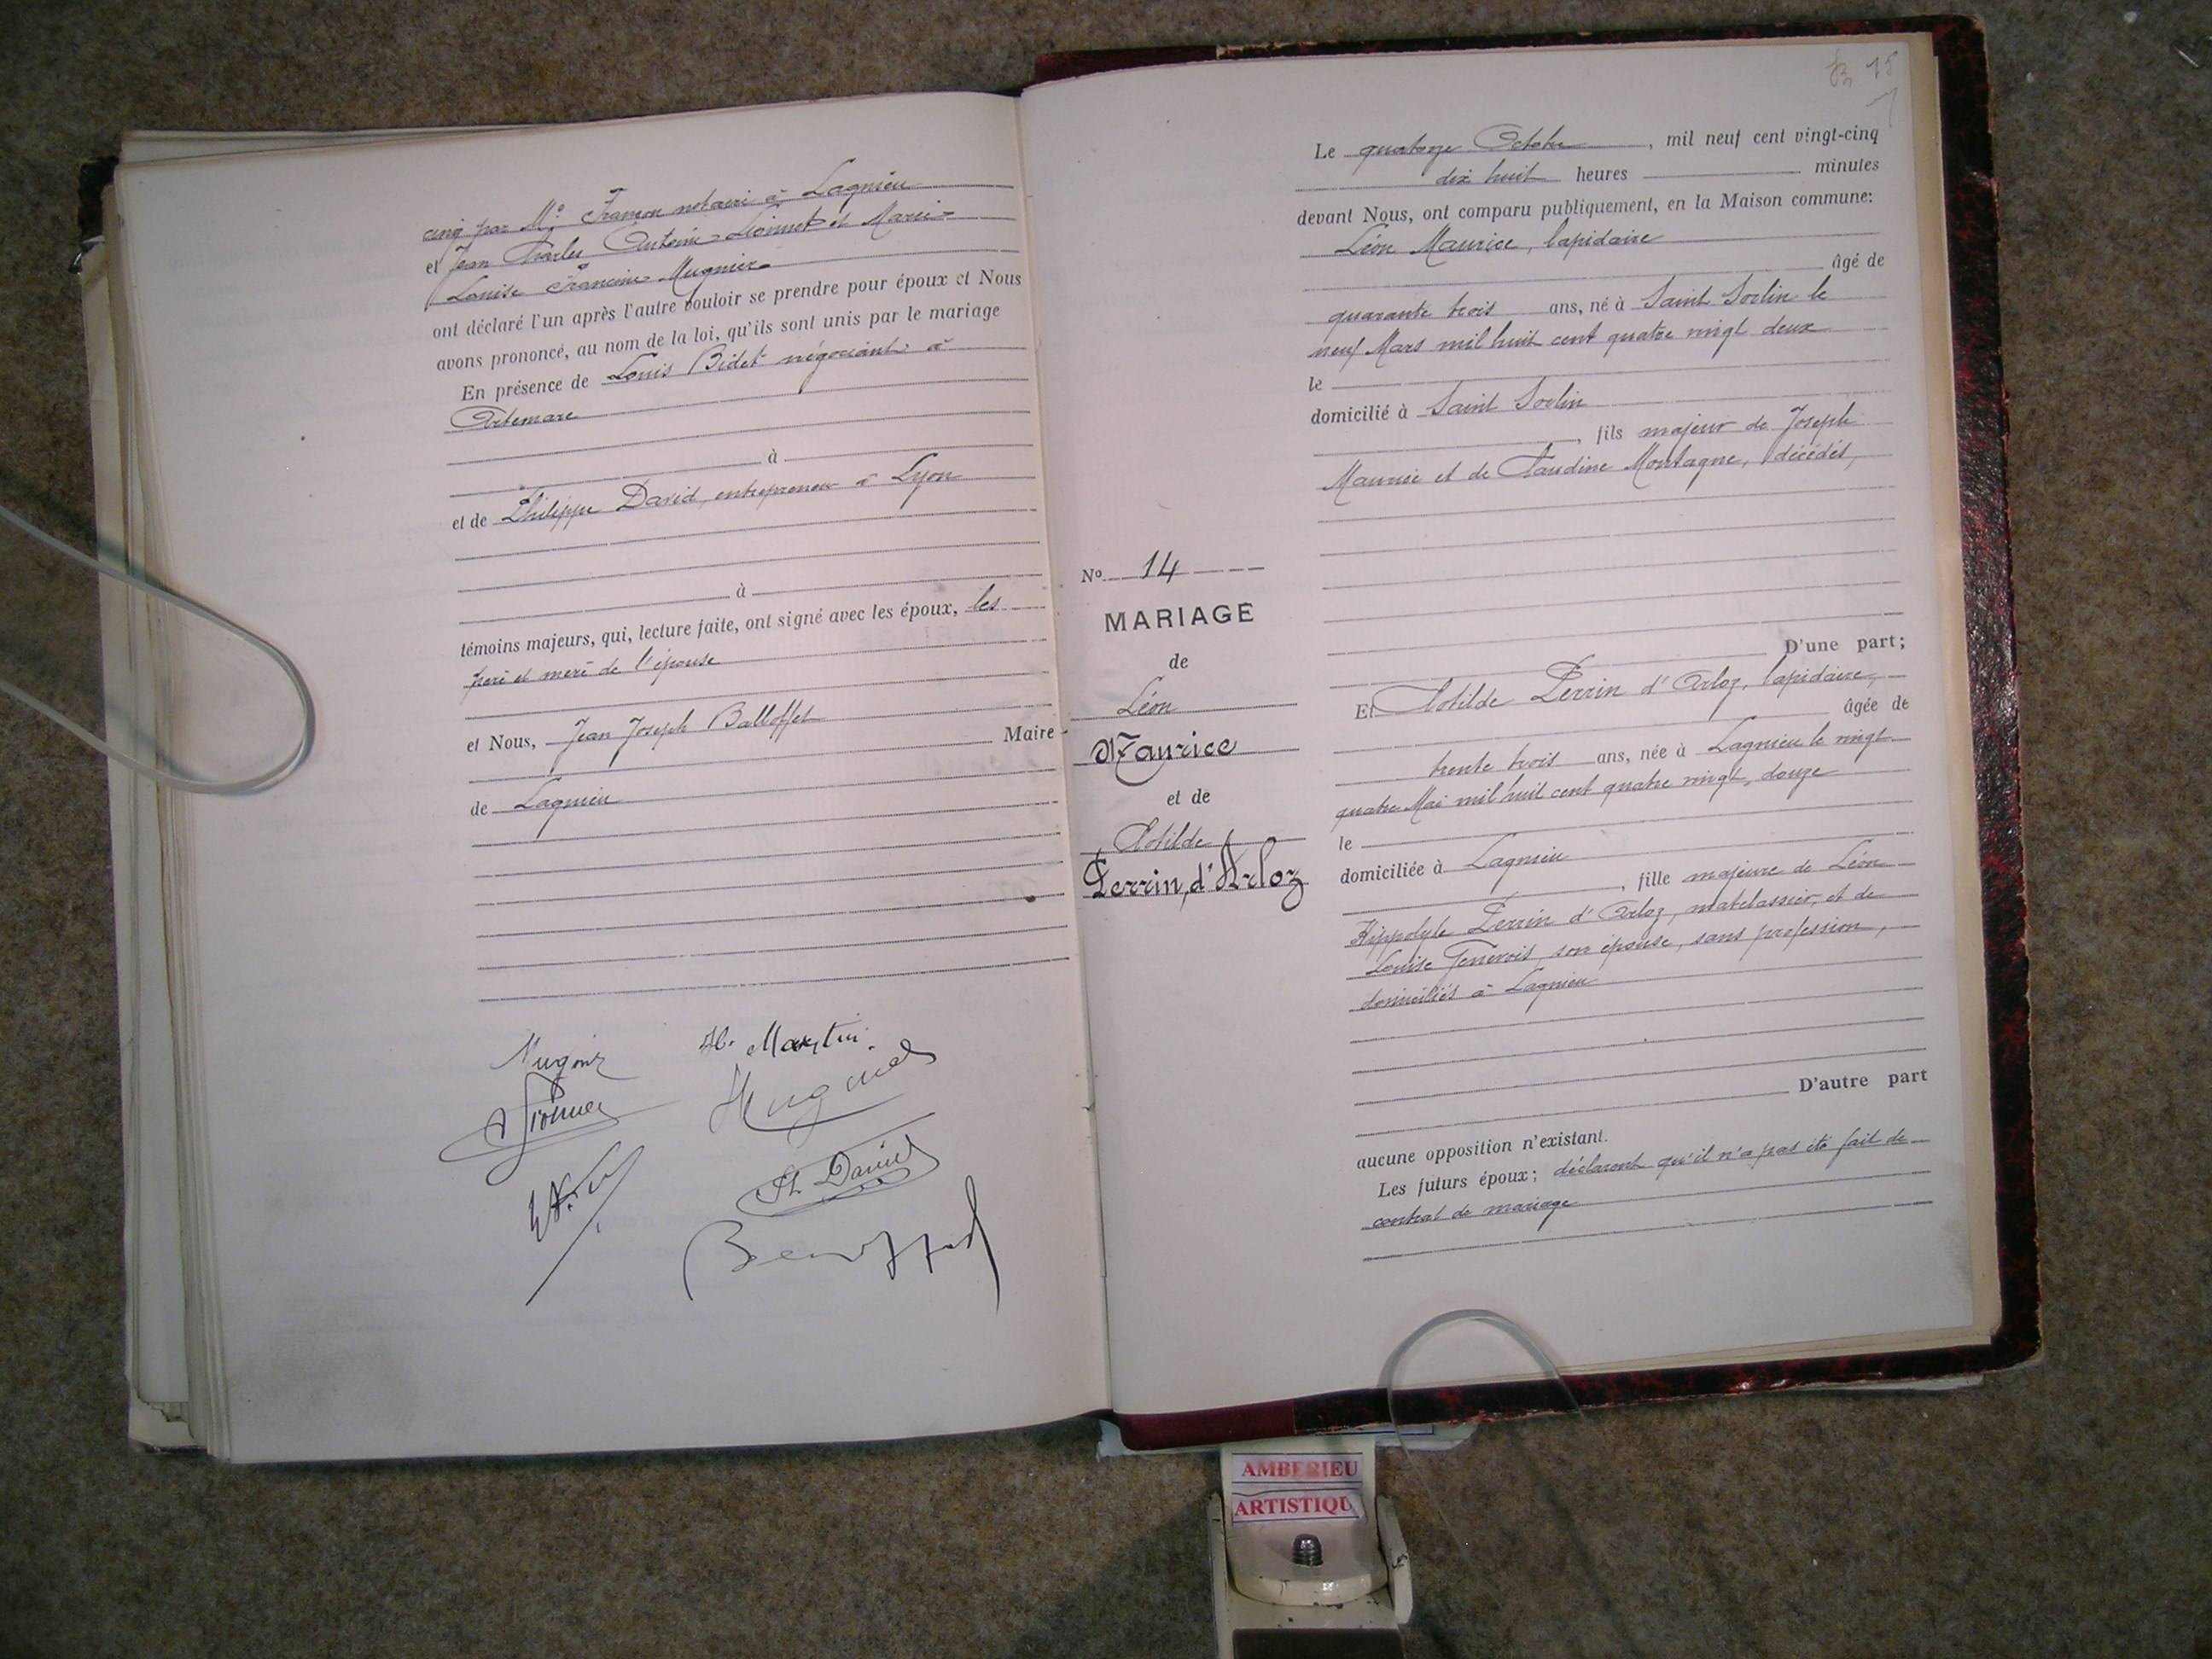 cinq par Me Framon notaire à Lagnieu
et Jean Charles Antoine Lionnet et Marie
Louise Francine Mugnier
ont déclaré l'un après l'autre vouloir se prendre pour époux et Nous
avons prononcé, au nom de la loi, qu'ils sont unis par le mariage
En présence de Louis Bidet négociant à
Artemare
à
et de Philippe David, entrepreneur à Lyon
à
témoins majeurs, qui, lecture faite, ont signé avec les époux, les
père et mère de l'épouse
et Nous, Jean Joseph Balloffet
Maire
de Lagnieu
H. Martin
Ph. David
15
Le quatorze Octobre, mil neuf cent vingt-cinq
dix huit heures minutes
devant Nous, ont comparu publiquement, en la Maison commune:
Léon Maurice, lapidaire
âgé de
quarante trois ans, né à Saint Sorlin le
neuf Mars mil huit cent quatre vingt deux
le
domicilié à Saint Sorlin
, fils majeur de Joseph
Maurice et de Claudine Montagne, décédés,
D'une part;
Et Clotilde Perrin d'Arloz, lapidaire,
âgée de
trente trois ans, née à Lagnieu le vingt
quatre Mai mil huit cent quatre vingt douze
le
domiciliée à Lagnieu
, fille majeure de Léon
Hippolyte Perrin d'Arloz, matelassier, et de
Louise Genevois, son épouse, sans profession,
domiciliés à Lagnieu
D'autre part
aucune opposition n'existant.
Les futurs époux; déclarent qu'il n'a pas été fait de
contrat de mariage
No 14
MARIAGE
de
Léon
Maurice
et de
Clotilde
Perrin, d'Arloz
AMBERIEU
ARTISTIQU